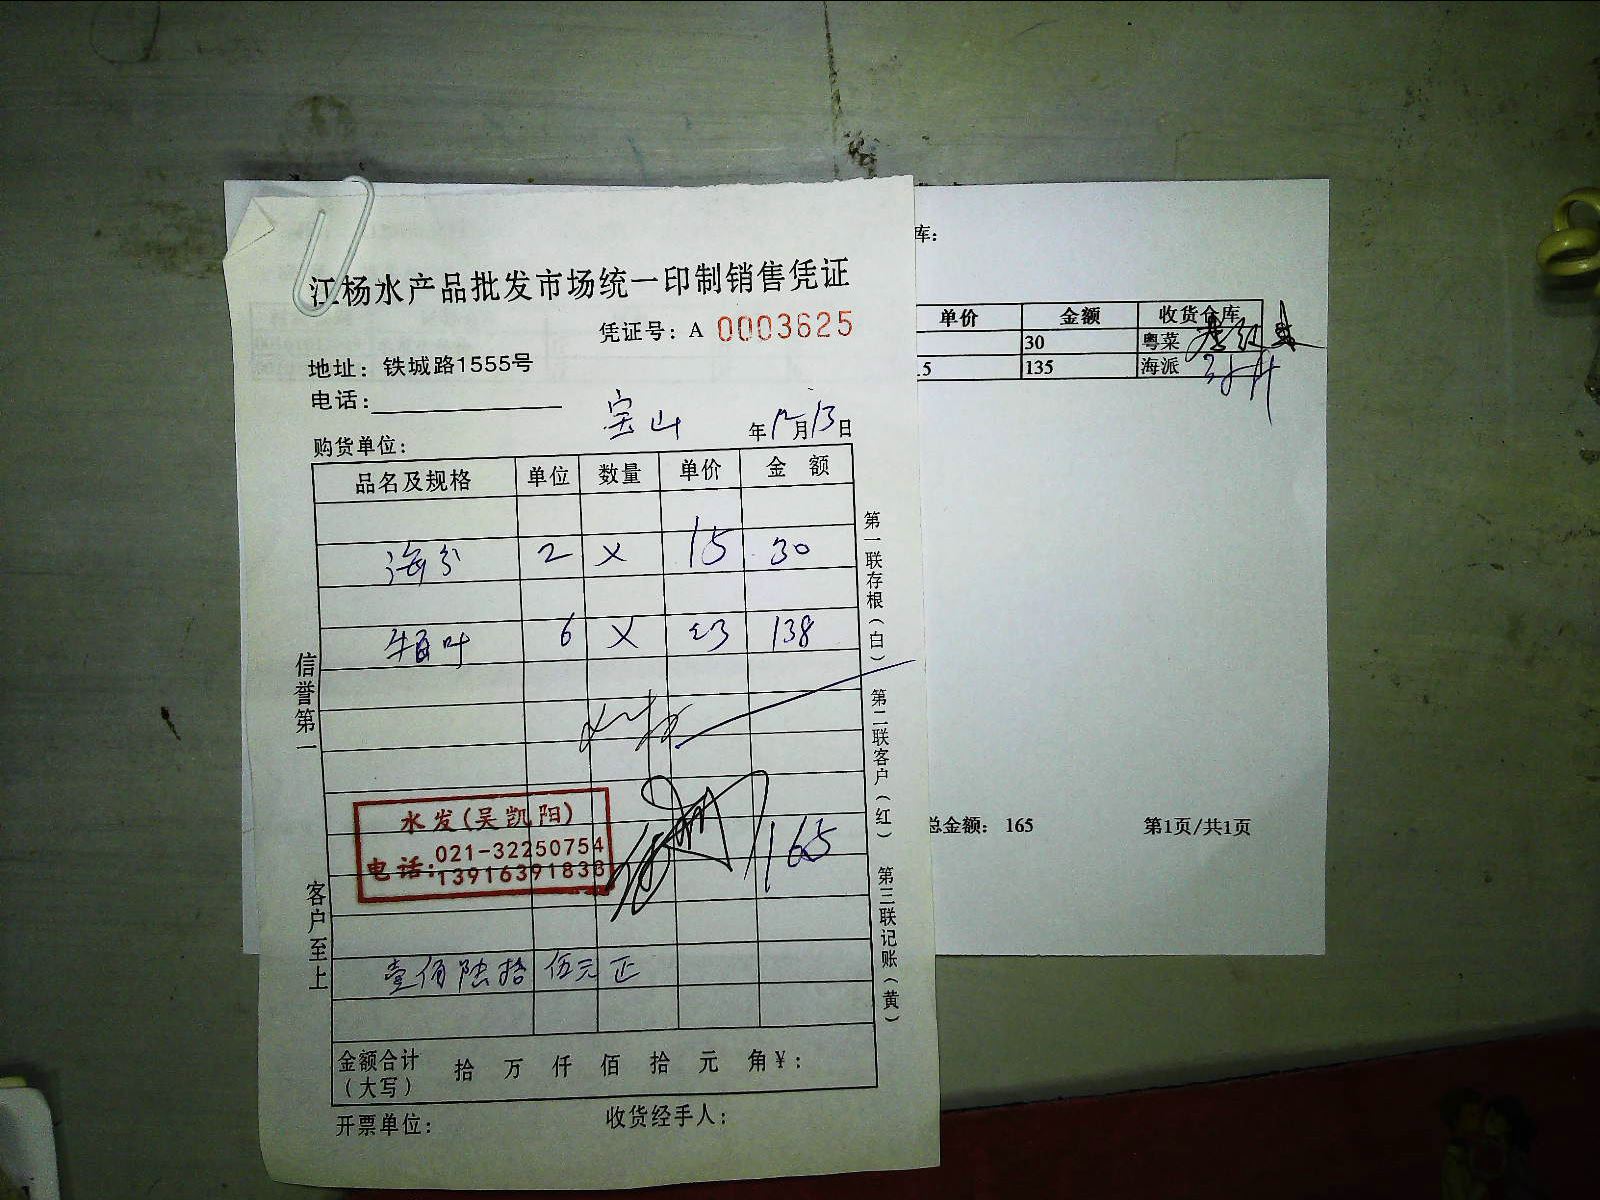 江杨水产品批发市场统一印制销售凭证
凭证号：A 0003625
地址：铁城路1555号
电话：
宝山
年12月13日
购货单位：
品名及规格 单位 数量 单价 金额
2 X 15 30
牛百叶 6 X 23 138
165
水发(吴凯阳)
电话：021-32250754
13916391838
壹佰陆拾伍元正
金额合计（大写） 拾 万 仟 佰 拾 元 角 ¥：
开票单位： 收货经手人：
信誉第一
客户至上
第一联存根（白）
第二联客户（红）
第三联记账（黄）
库：
单价 金额 收货仓库
30 粤菜
.5 135 海派
总金额： 165 第1页/共1页